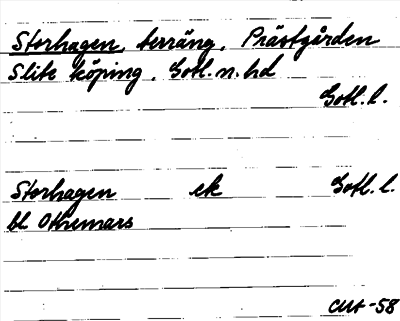 Storhagen, terräng, Prästgården
Slite köping, Gotl. n. hd
Gotl. l.
Storhagen ek Gotl. l.
bl Othemars
CMA-58